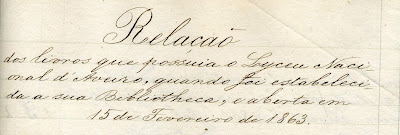 Relação
dos livros que possuia o Lyceu Naci-
onal d'Aveiro, quando foi estabeleci-
da a sua Bibliotheca, e aberta em
15 de Fevereiro de 1863.